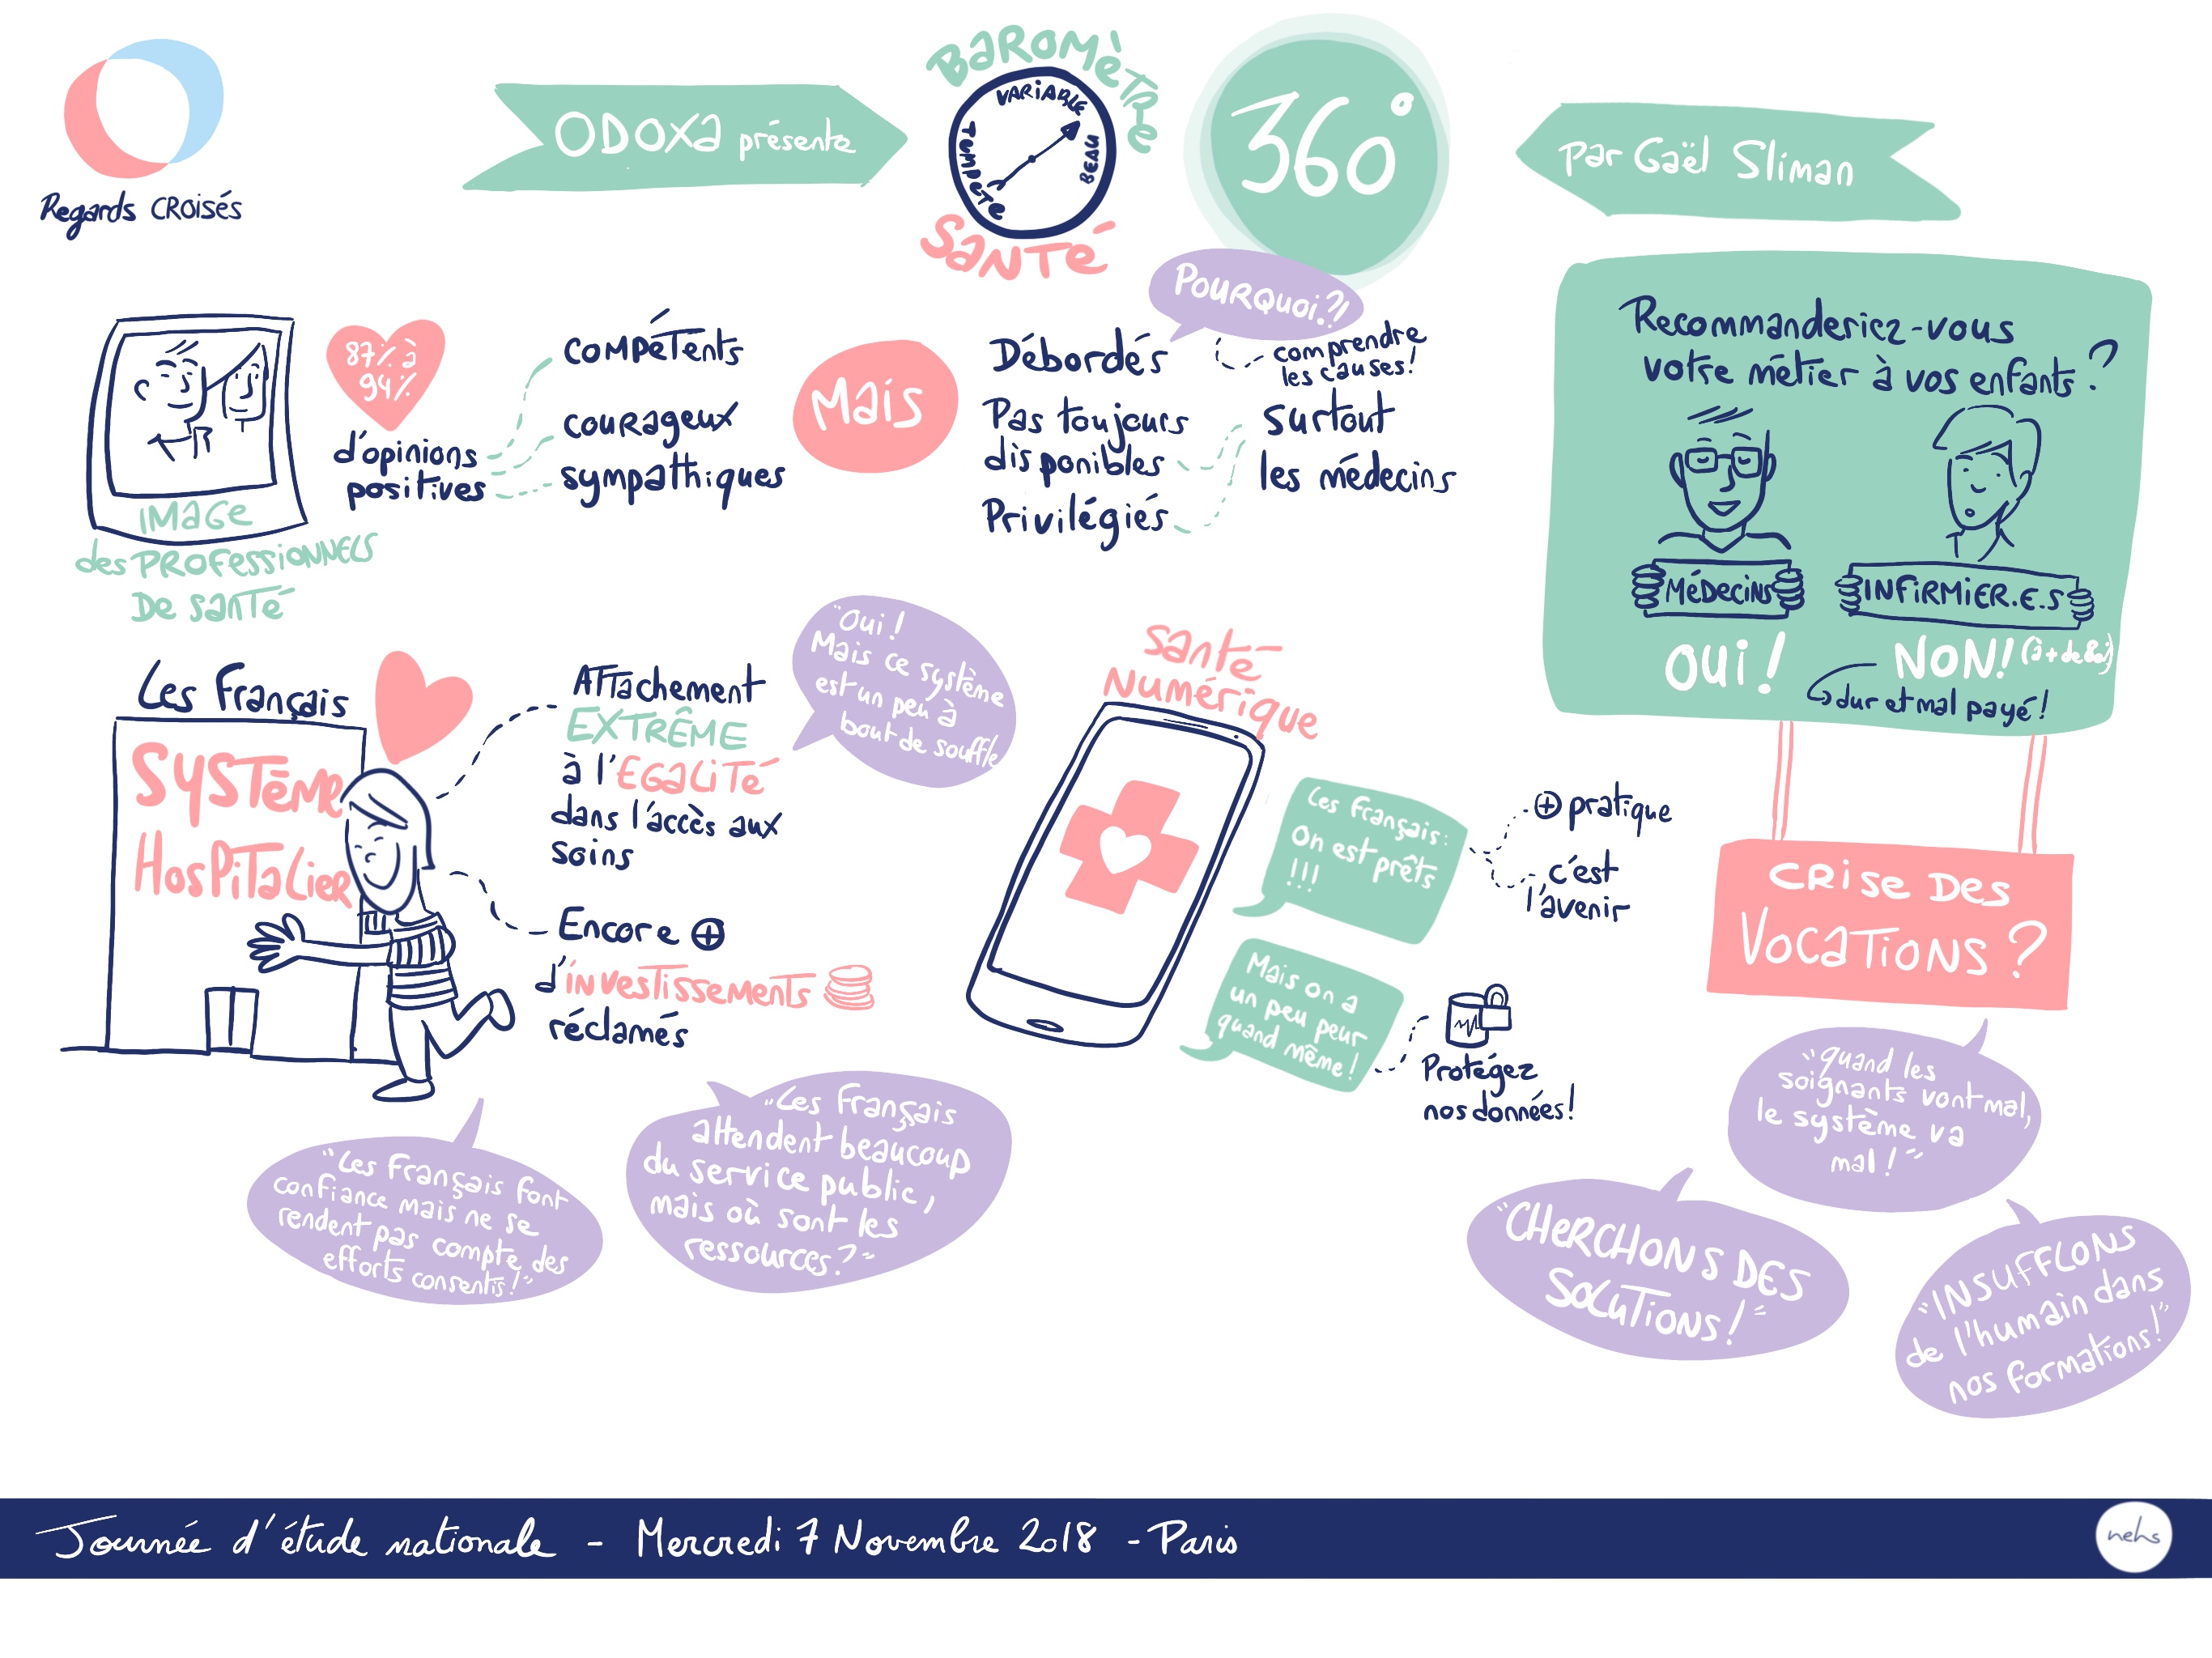 Regards CROISÉS
ODOXA présente
BAROMÈTRE
VARIABLE
TEMPÊTE
BEAU
SANTÉ
360°
Par Gaël Sliman
IMAGE
des PROFESSIONNELS
DE SANTÉ
87% à
94%
d'opinions
positives
COMPÉTENTS
COURAGEUX
sympathiques
Mais
Débordés
Pas toujours
disponibles
Privilégiés
POURQUOI?!
comprendre
les causes!
surtout
les médecins
Recommanderiez-vous
votre métier à vos enfants?
MÉDECINS
INFIRMIER.E.S
OUI!
NON!
dur et mal payé!
CRISE DES
VOCATIONS?
"Quand les
soignants vont mal,
le système va
mal!"
"CHERCHONS DES
SOLUTIONS!"
"INSUFFLONS
de l'humain dans
nos formations!"
Les Français
SYSTÈME
HOSPITALIER
ATTachement
EXTRÊME
à l'EGALITÉ
dans l'accès aux
soins
Encore +
d'investissements
réclamés
"Oui!
Mais ce système
est un peu à
bout de souffle
"Les Français font
confiance mais ne se
rendent pas compte des
efforts consentis!"
"Les Français
attendent beaucoup
du service public,
mais où sont les
ressources?"
Santé
Numérique
Les Français:
On est prêts
!!!
+ pratique
c'est
l'avenir
Mais on a
un peu peur
quand même!
Protégez
nos données!
Journée d'étude nationale - Mercredi 7 Novembre 2018 - Paris
nehs